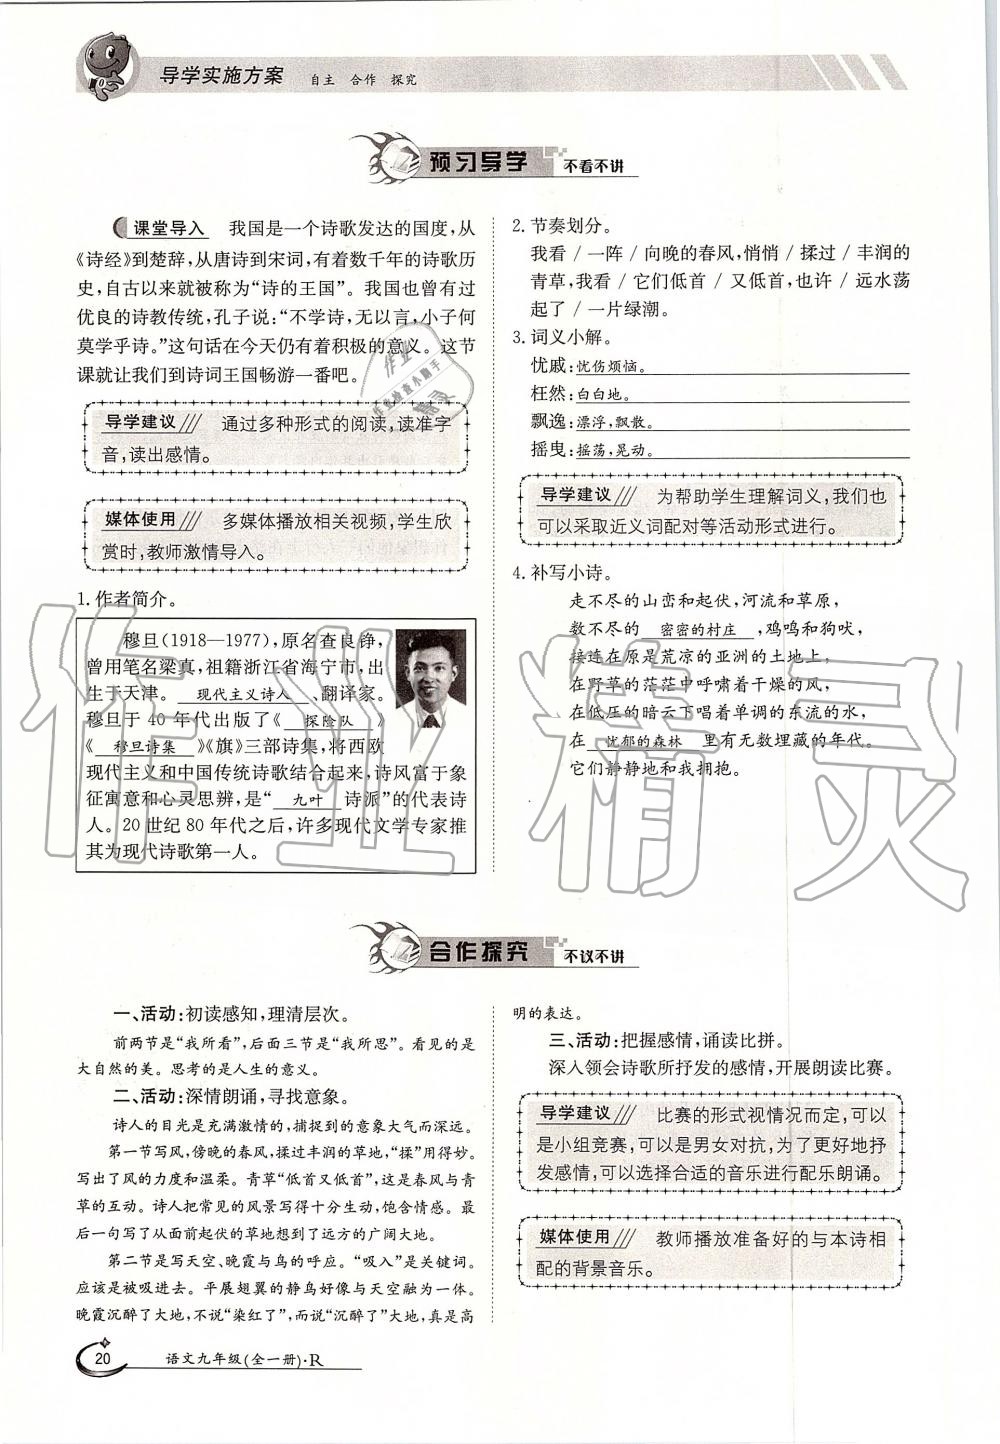 导学实施方案 自主 合作 探究
预习导学 不看不讲
课堂导入 我国是一个诗歌发达的国度,从
《诗经》到楚辞,从唐诗到宋词,有着数千年的诗歌历
史,自古以来就被称为“诗的王国”。我国也曾有过
优良的诗教传统,孔子说:“不学诗,无以言,小子何
莫学乎诗。”这句话在今天仍有着积极的意义。这节
课就让我们到诗词王国畅游一番吧。
导学建议 通过多种形式的阅读,读准字
音,读出感情。
媒体使用 多媒体播放相关视频,学生欣
赏时,教师激情导入。
1. 作者简介。
穆旦(1918—1977),原名查良铮,
曾用笔名梁真,祖籍浙江省海宁市,出
生于天津。 现代主义诗人 、翻译家。
穆旦于 40 年代出版了《 探险队 》
《 穆旦诗集 》《旗》三部诗集,将西欧
现代主义和中国传统诗歌结合起来,诗风富于象
征寓意和心灵思辨,是“ 九叶 诗派”的代表诗
人。20 世纪 80 年代之后,许多现代文学专家推
其为现代诗歌第一人。
2. 节奏划分。
我看 / 一阵 / 向晚的春风,悄悄 / 揉过 / 丰润的
青草,我看 / 它们低首 / 又低首,也许 / 远水荡
起了 / 一片绿潮。
3. 词义小解。
忧戚:忧伤烦恼。
枉然:白白地。
飘逸:漂浮,飘散。
摇曳:摇荡,晃动。
导学建议 为帮助学生理解词义,我们也
可以采取近义词配对等活动形式进行。
4. 补写小诗。
走不尽的山峦和起伏,河流和草原,
数不尽的 密密的村庄 ,鸡鸣和狗吠,
接连在原是荒凉的亚洲的土地上,
在野草的茫茫中呼啸着干燥的风,
在低压的暗云下唱着单调的东流的水,
在 忧郁的森林 里有无数埋藏的年代。
它们静静地和我拥抱。
合作探究 不议不讲
一、活动:初读感知,理清层次。
前两节是“我所看”,后面三节是“我所思”。看见的是
大自然的美。思考的是人生的意义。
二、活动:深情朗诵,寻找意象。
诗人的目光是充满激情的,捕捉到的意象大气而深远。
第一节写风,傍晚的春风,揉过丰润的草地,“揉”用得妙。
写出了风的力度和温柔。青草“低首又低首”,这是春风与青
草的互动。诗人把常见的风景写得十分生动,饱含情感。最
后一句写了从面前起伏的草地想到了远方的广阔大地。
第二节是写天空、晚霞与鸟的呼应。“吸入”是关键词。
应该是被吸进去。平展翅翼的静鸟好像与天空融为一体。
晚霞沉醉了大地,不说“染红了”,而说“沉醉了”大地,真是高
明的表达。
三、活动:把握感情,诵读比拼。
深入领会诗歌所抒发的感情,开展朗读比赛。
导学建议 比赛的形式视情况而定,可以
是小组竞赛,可以是男女对抗,为了更好地抒
发感情,可以选择合适的音乐进行配乐朗诵。
媒体使用 教师播放准备好的与本诗相
配的背景音乐。
20 语文九年级(全一册)·R
作业精灵